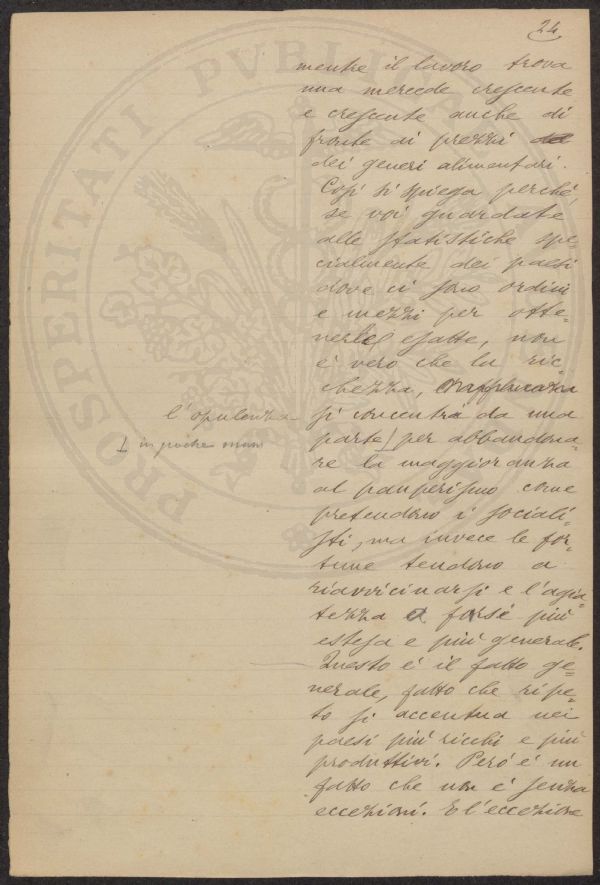 24
mentre il lavoro trova
una mercede crescente
e crescente anche di
fronte ai prezzi
dei generi alimentari.
Così si spiega perché,
se voi guardate
alle statistiche spe-
cialmente dei paesi
dove ci sono ordini
e mezzi per otte-
nerle esatte, non
è vero che la ric-
chezza,
l'opulenza
si concentra da una
parte per abbandona-
in poche mani
re la maggioranza
al pauperismo come
pretendono i sociali-
sti, ma invece le for-
tune tendono a
riavvicinarsi e l'agia-
tezza è forse più
estesa e più generale.
Questo è il fatto ge-
nerale, fatto che ripe-
to si accentua nei
paesi più ricchi e più
produttivi. Però è un
fatto che non è senza
eccezioni. E l'eccezione
PROSPERITATI PVBLICAE